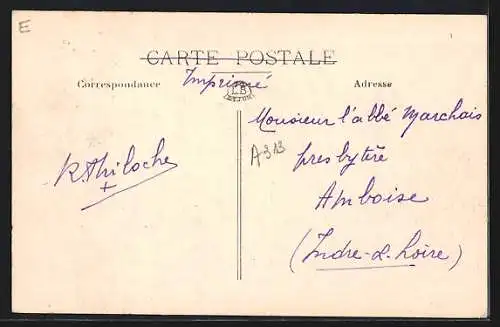 E
CARTE POSTALE
Correspondance
Imprimé
LB
DIJON
Adresse
Monsieur l'abbé Marchais
presbytère
Amboise
(Indre-&-Loire)
A313
R. Thiloche